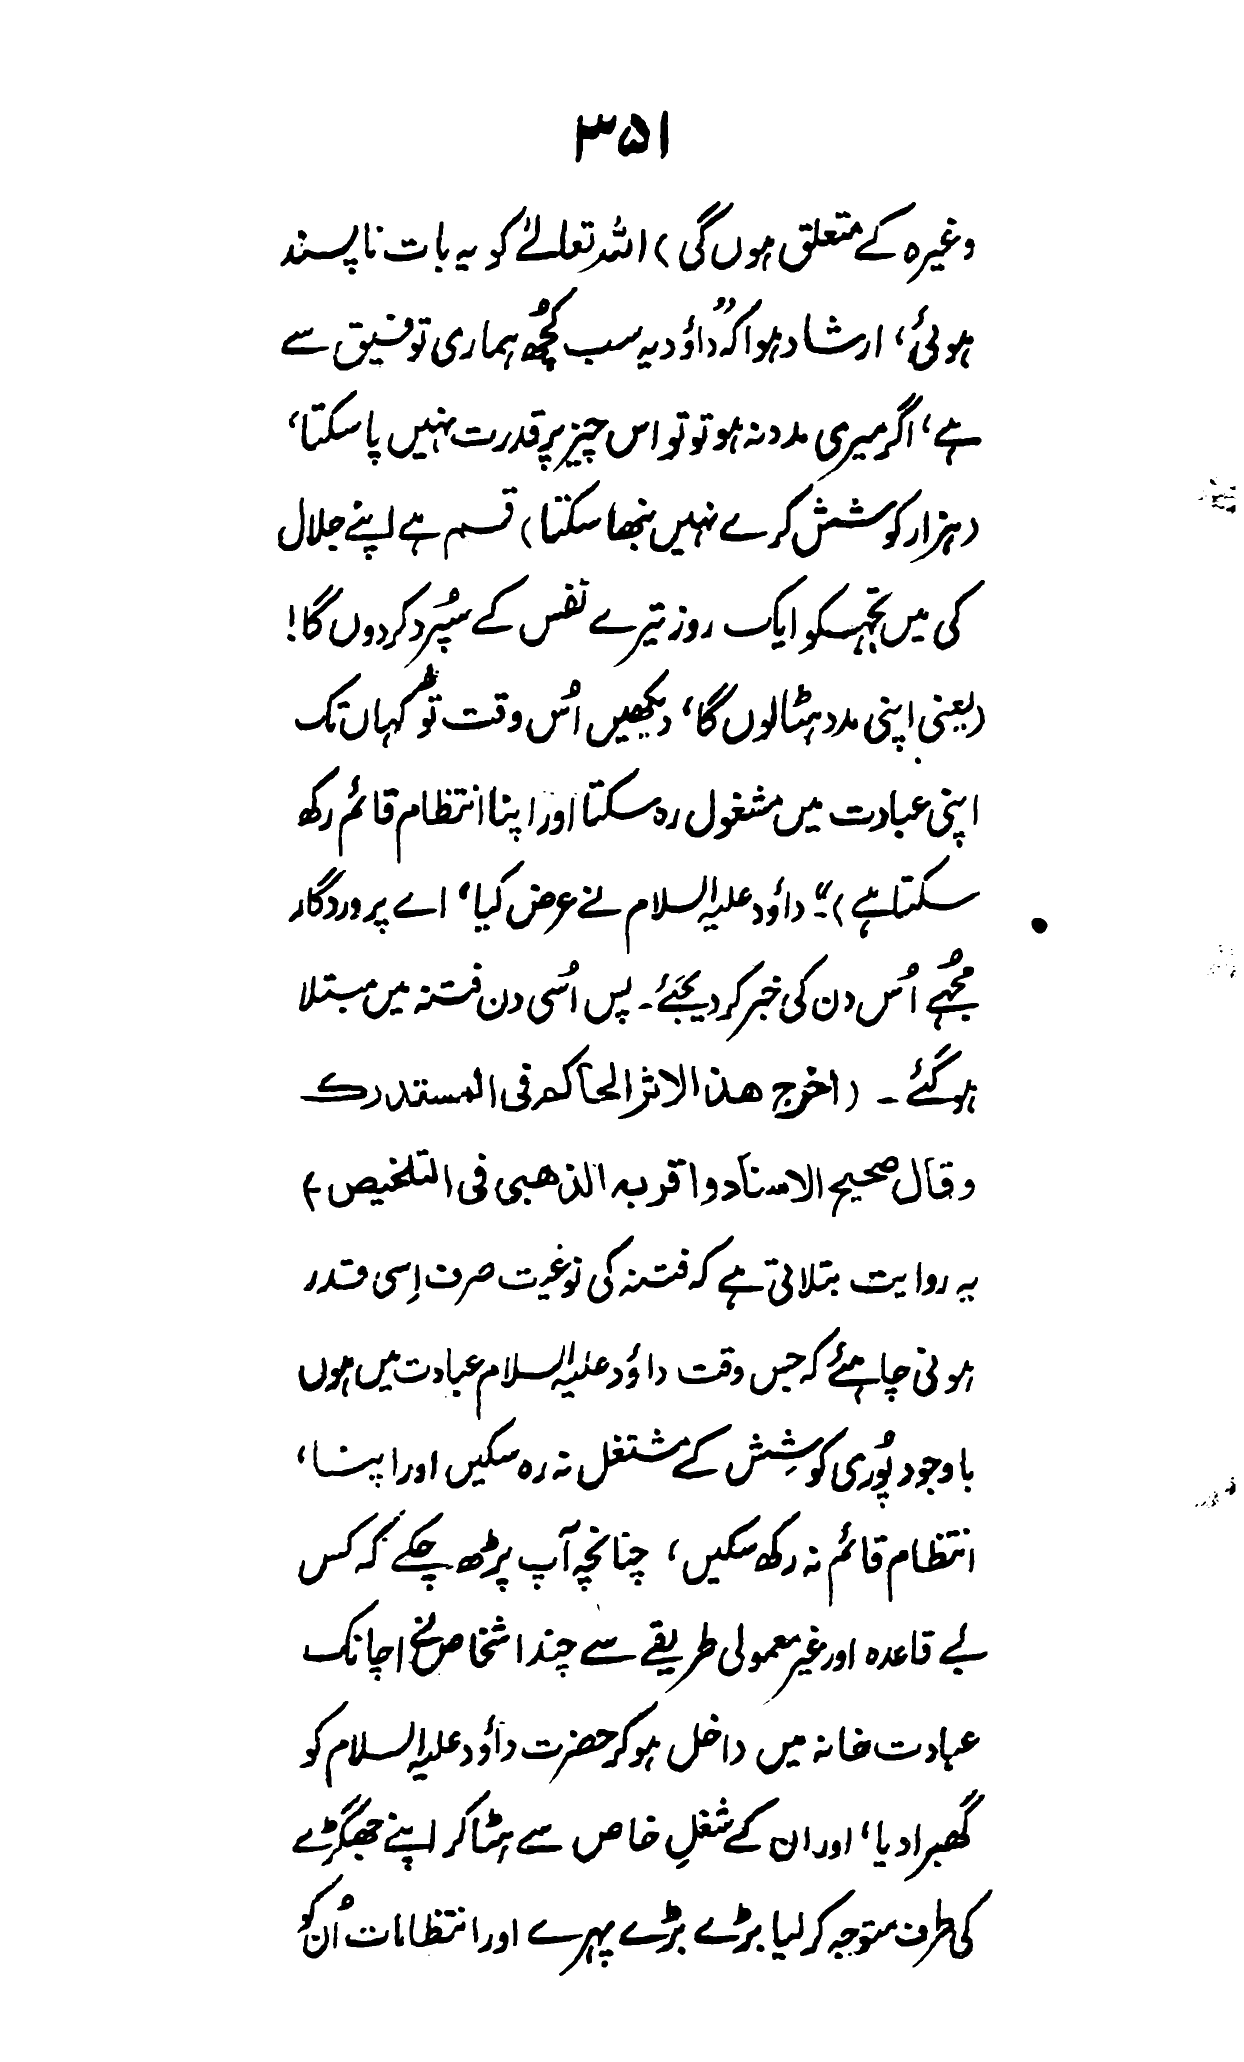 ۳۵۱
وغیرہ کے متعلق ہوں گی) اللہ تعالےٰ کو یہ بات ناپسند
ہوئی، ارشاد ہوا کہ "داؤد یہ سب کچُھ ہماری توفیق سے
ہے، اگر میری مدد نہ ہو تو تو اس چیز پر قدرت نہیں پا سکتا،
(ہزار کوشش کرے نہیں نبھا سکتا) قسم ہے اپنے جلال
کی میں تجھکو ایک روز تیرے نفس کے سپُرد کر دوں گا!
(یعنی اپنی مدد ہٹا لوں گا، دیکھیں اُس وقت توُ کہاں تک
اپنی عبادت میں مشغول رہ سکتا اور اپنا انتظام قائم رکھ
سکتا ہے)"۔ داؤد علیہ السلام نے عرض کیا، اے پروردگار
مجُھے اُس دن کی خبر کر دیجئے۔ پس اُسی دن فتنہ میں مبتلا
ہو گئے ۔ (اخرج ھذا الاثر الحاکم فی المستدرک
وقال صحیح الاسناد واقر بہ الذھبی فی التلخیص)
یہ روایت بتلاتی ہے کہ فتنہ کی نوعیت صرف اِسی قدر
ہونی چاہئے کہ جس وقت داؤد علیہ السلام عبادت میں ہوں
باوجود پوُری کوشِش کے مشتغل نہ رہ سکیں اور اپنا،
انتظام قائم نہ رکھ سکیں، چنانچہ آپ پڑھ چکے کہ کس
بے قاعدہ اور غیر معمولی طریقے سے چند اشخاص نے اچانک
عبادت خانہ میں داخل ہو کر حضرت داؤد علیہ السلام کو
گھبرا دیا، اور ان کے شغلِ خاص سے ہٹا کر اپنے جھگڑے
کی طرف متوجہ کر لیا بڑے بڑے پہرے اور انتظامات اُن کو